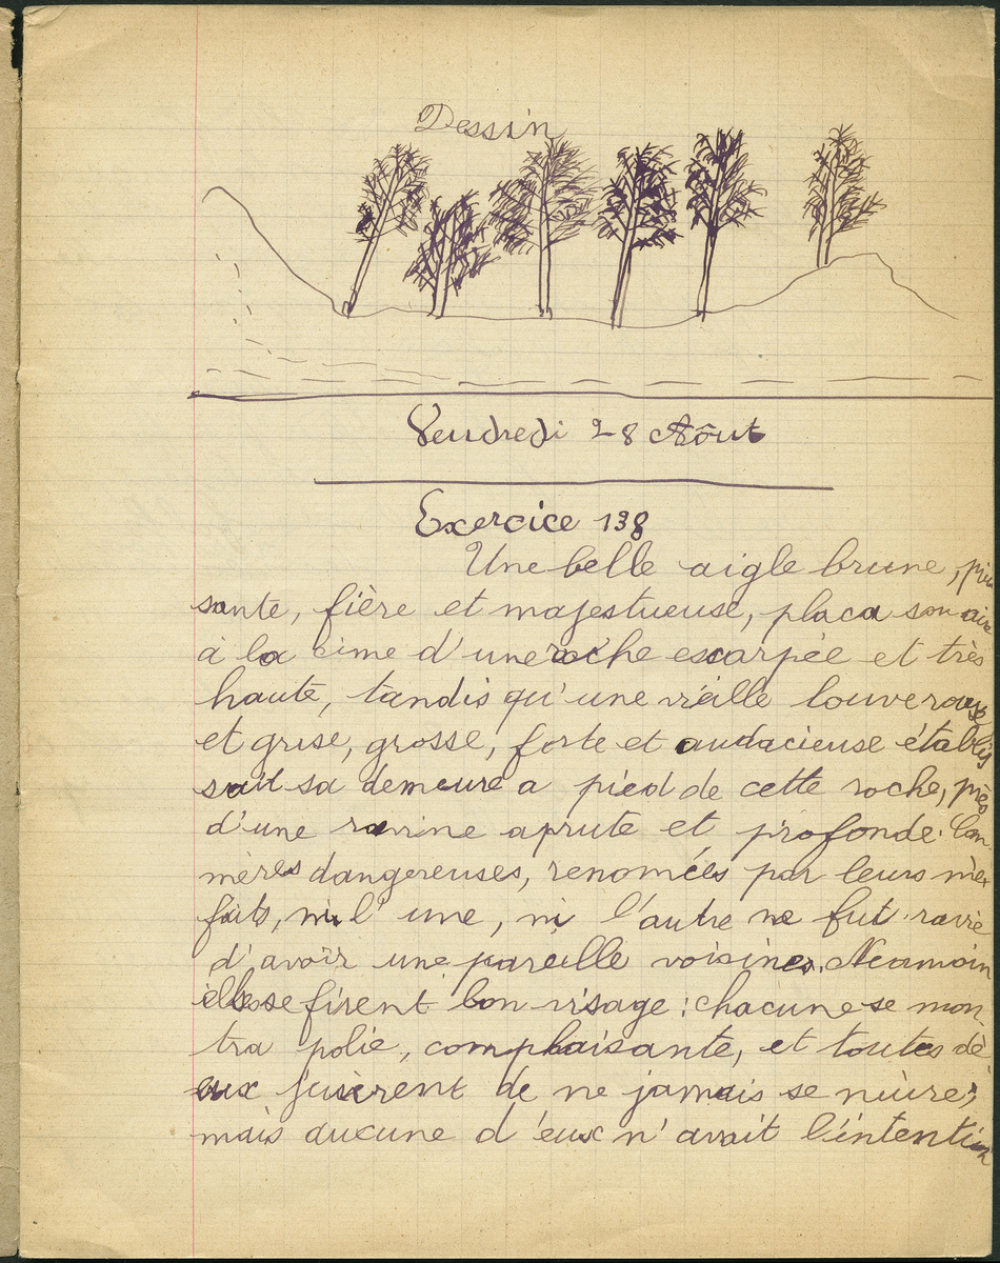 Dessin
Vendredi 28 Aôut
Exercice 138
Une belle aigle brune, pui
sante, fière et majestueuse, placa son aire
à la cime d'une roche escarpée et très
haute, tandis qu'une vieille louve rouge
et grise, grosse, forte et audacieuse établis
sait sa demeure a pied de cette roche, près
d'une ravine aprute et profonde.
mères dangereuses, renomées par leurs mé
faits, ni l'une, ni l'autre ne fut ravie
d'avoir une pareille voisines. Neamoin
elles se firent bon visage : chacune se mon
tra polie, complaisante, et toutes de
eux jurèrent de ne jamais se nuire ;
mais aucune d'eux n'avait l'intention